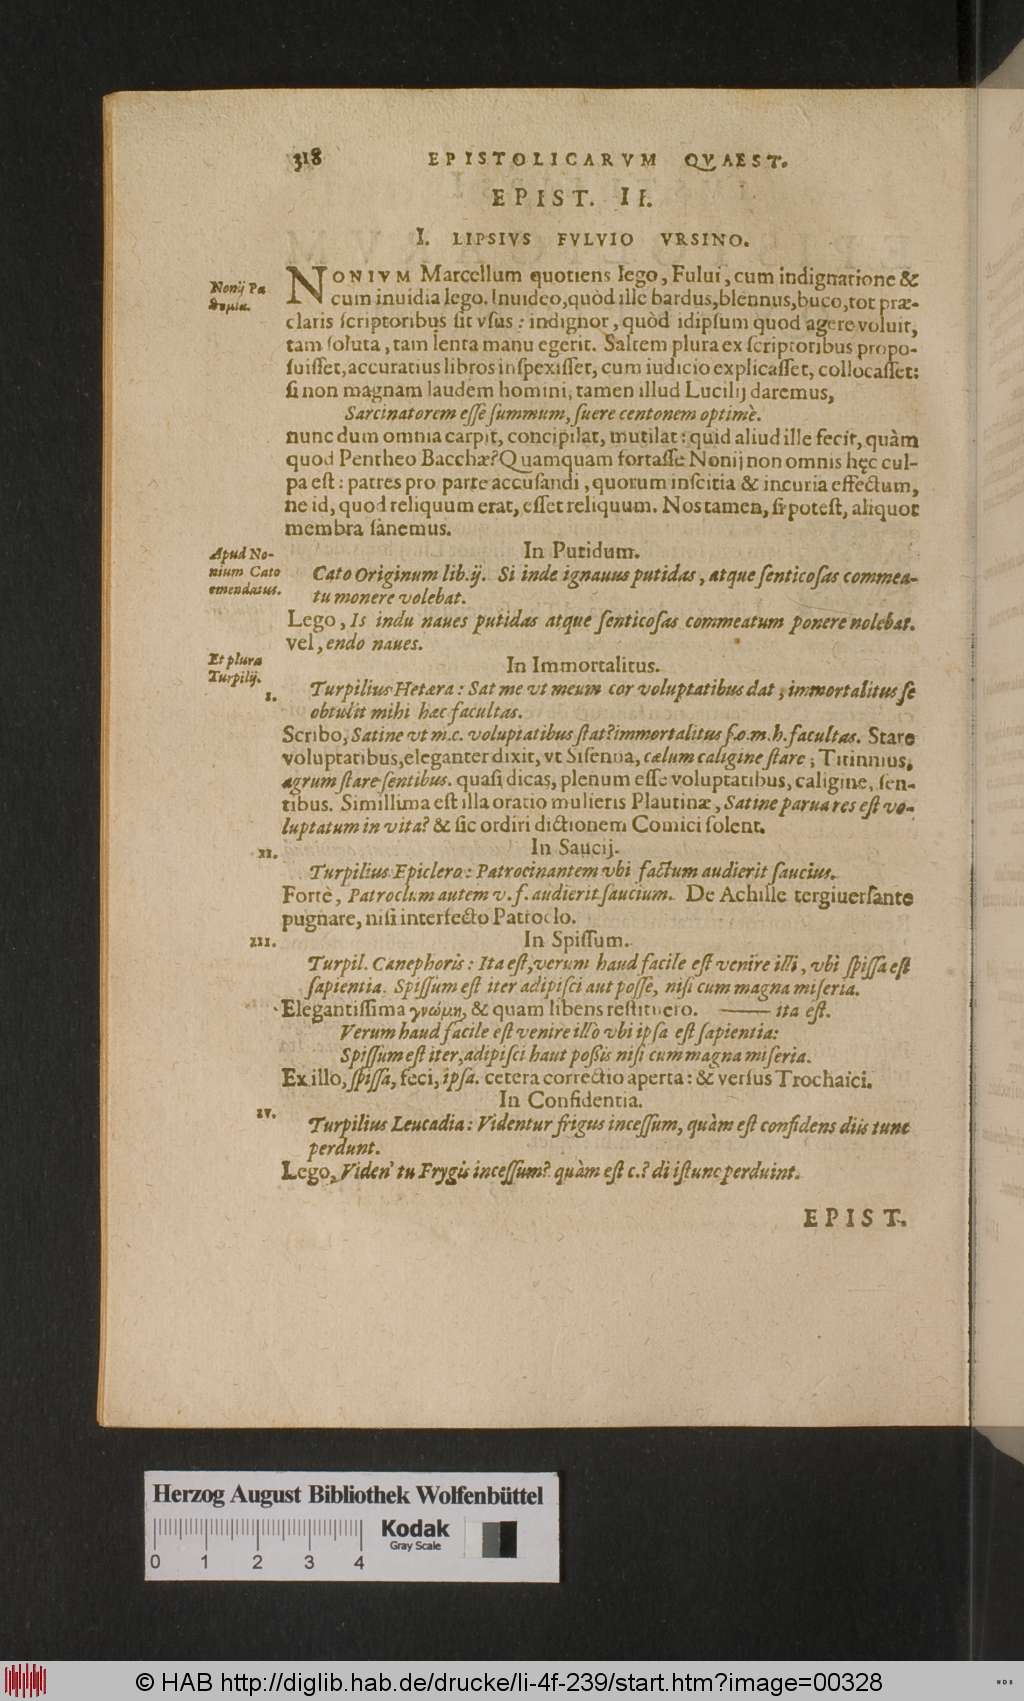 318 EPISTOLICARVM QVAEST.
EPIST. II.
I. LIPSIVS FVLVIO VRSINO.
Nonij Pa
NONIVM Marcellum quotiens lego, Fului, cum indignatione &
cum inuidia lego. Inuideo, quòd ille bardus, blennus, buco, tot præ-
claris scriptoribus sit vsus: indignor, quòd idipsum quod agere voluit,
tam soluta, tam lenta manu egerit. Saltem plura ex scriptoribus propo-
suisset, accuratius libros inspexisset, cum iudicio explicasset, collocasset:
si non magnam laudem homini, tamen illud Lucilij daremus,
Sarcinatorem esse summum, suere centonem optimè.
nunc dum omnia carpit, concipilat, mutilat: quid aliud ille fecit, quàm
quod Pentheo Bacchæ? Quamquam fortasse Nonij non omnis hęc cul-
pa est: patres pro parte accusandi, quorum inscitia & incuria effectum,
ne id, quod reliquum erat, esset reliquum. Nos tamen, si potest, aliquot
membra sanemus.
In Putidum.
Apud No-
nium Cato
emendatus.
Cato Originum lib. ij. Si inde ignauus putidas, atque senticosas commea-
tu monere volebat.
Lego, Is indu naues putidas atque senticosas commeatum ponere nolebat.
vel, endo naues.
Et plura
Turpilij.
In Immortalitus.
I.
Turpilius Hetæra: Sat me vt meum cor voluptatibus dat, immortalitus se
obtulit mihi hæc facultas.
Scribo, Satine vt m.c. voluptatibus stat? immortalitus s.o.m.h. facultas. Stare
voluptatibus, eleganter dixit, vt Sisenna, cælum caligine stare; Titinnius,
agrum stare sentibus. quasi dicas, plenum esse voluptatibus, caligine, sen-
tibus. Simillima est illa oratio mulieris Plautinæ, Satine parua res est vo-
luptatum in vita? & sic ordiri dictionem Comici solent.
In Saucij.
II.
Turpilius Epiclero: Patrocinantem vbi factum audierit saucius.
Fortè, Patroclum autem v. f. audierit saucium. De Achille tergiuersante
pugnare, nisi interfecto Patroclo.
In Spissum.
III.
Turpil. Canephoris: Ita est, verum haud facile est venire illi, vbi spissa est
sapientia. Spissum est iter adipisci aut posse, nisi cum magna miseria.
Elegantissima γνώμη, & quam libens restituero. —— ita est.
Verum haud facile est venire illo vbi ipsa est sapientia:
Spissum est iter, adipisci haut possis nisi cum magna miseria.
Ex illo, spissa, feci, ipsa. cetera correctio aperta: & versus Trochaici.
In Confidentia.
IV.
Turpilius Leucadia: Videntur frigus incessum, quàm est confidens diis tunc
perdunt.
Lego, Viden' tu Frygis incessum? quàm est c.? di istunc perduint.
EPIST.
Herzog August Bibliothek Wolfenbüttel
Kodak
Gray Scale
0 1 2 3 4
© HAB http://diglib.hab.de/drucke/li-4f-239/start.htm?image=00328